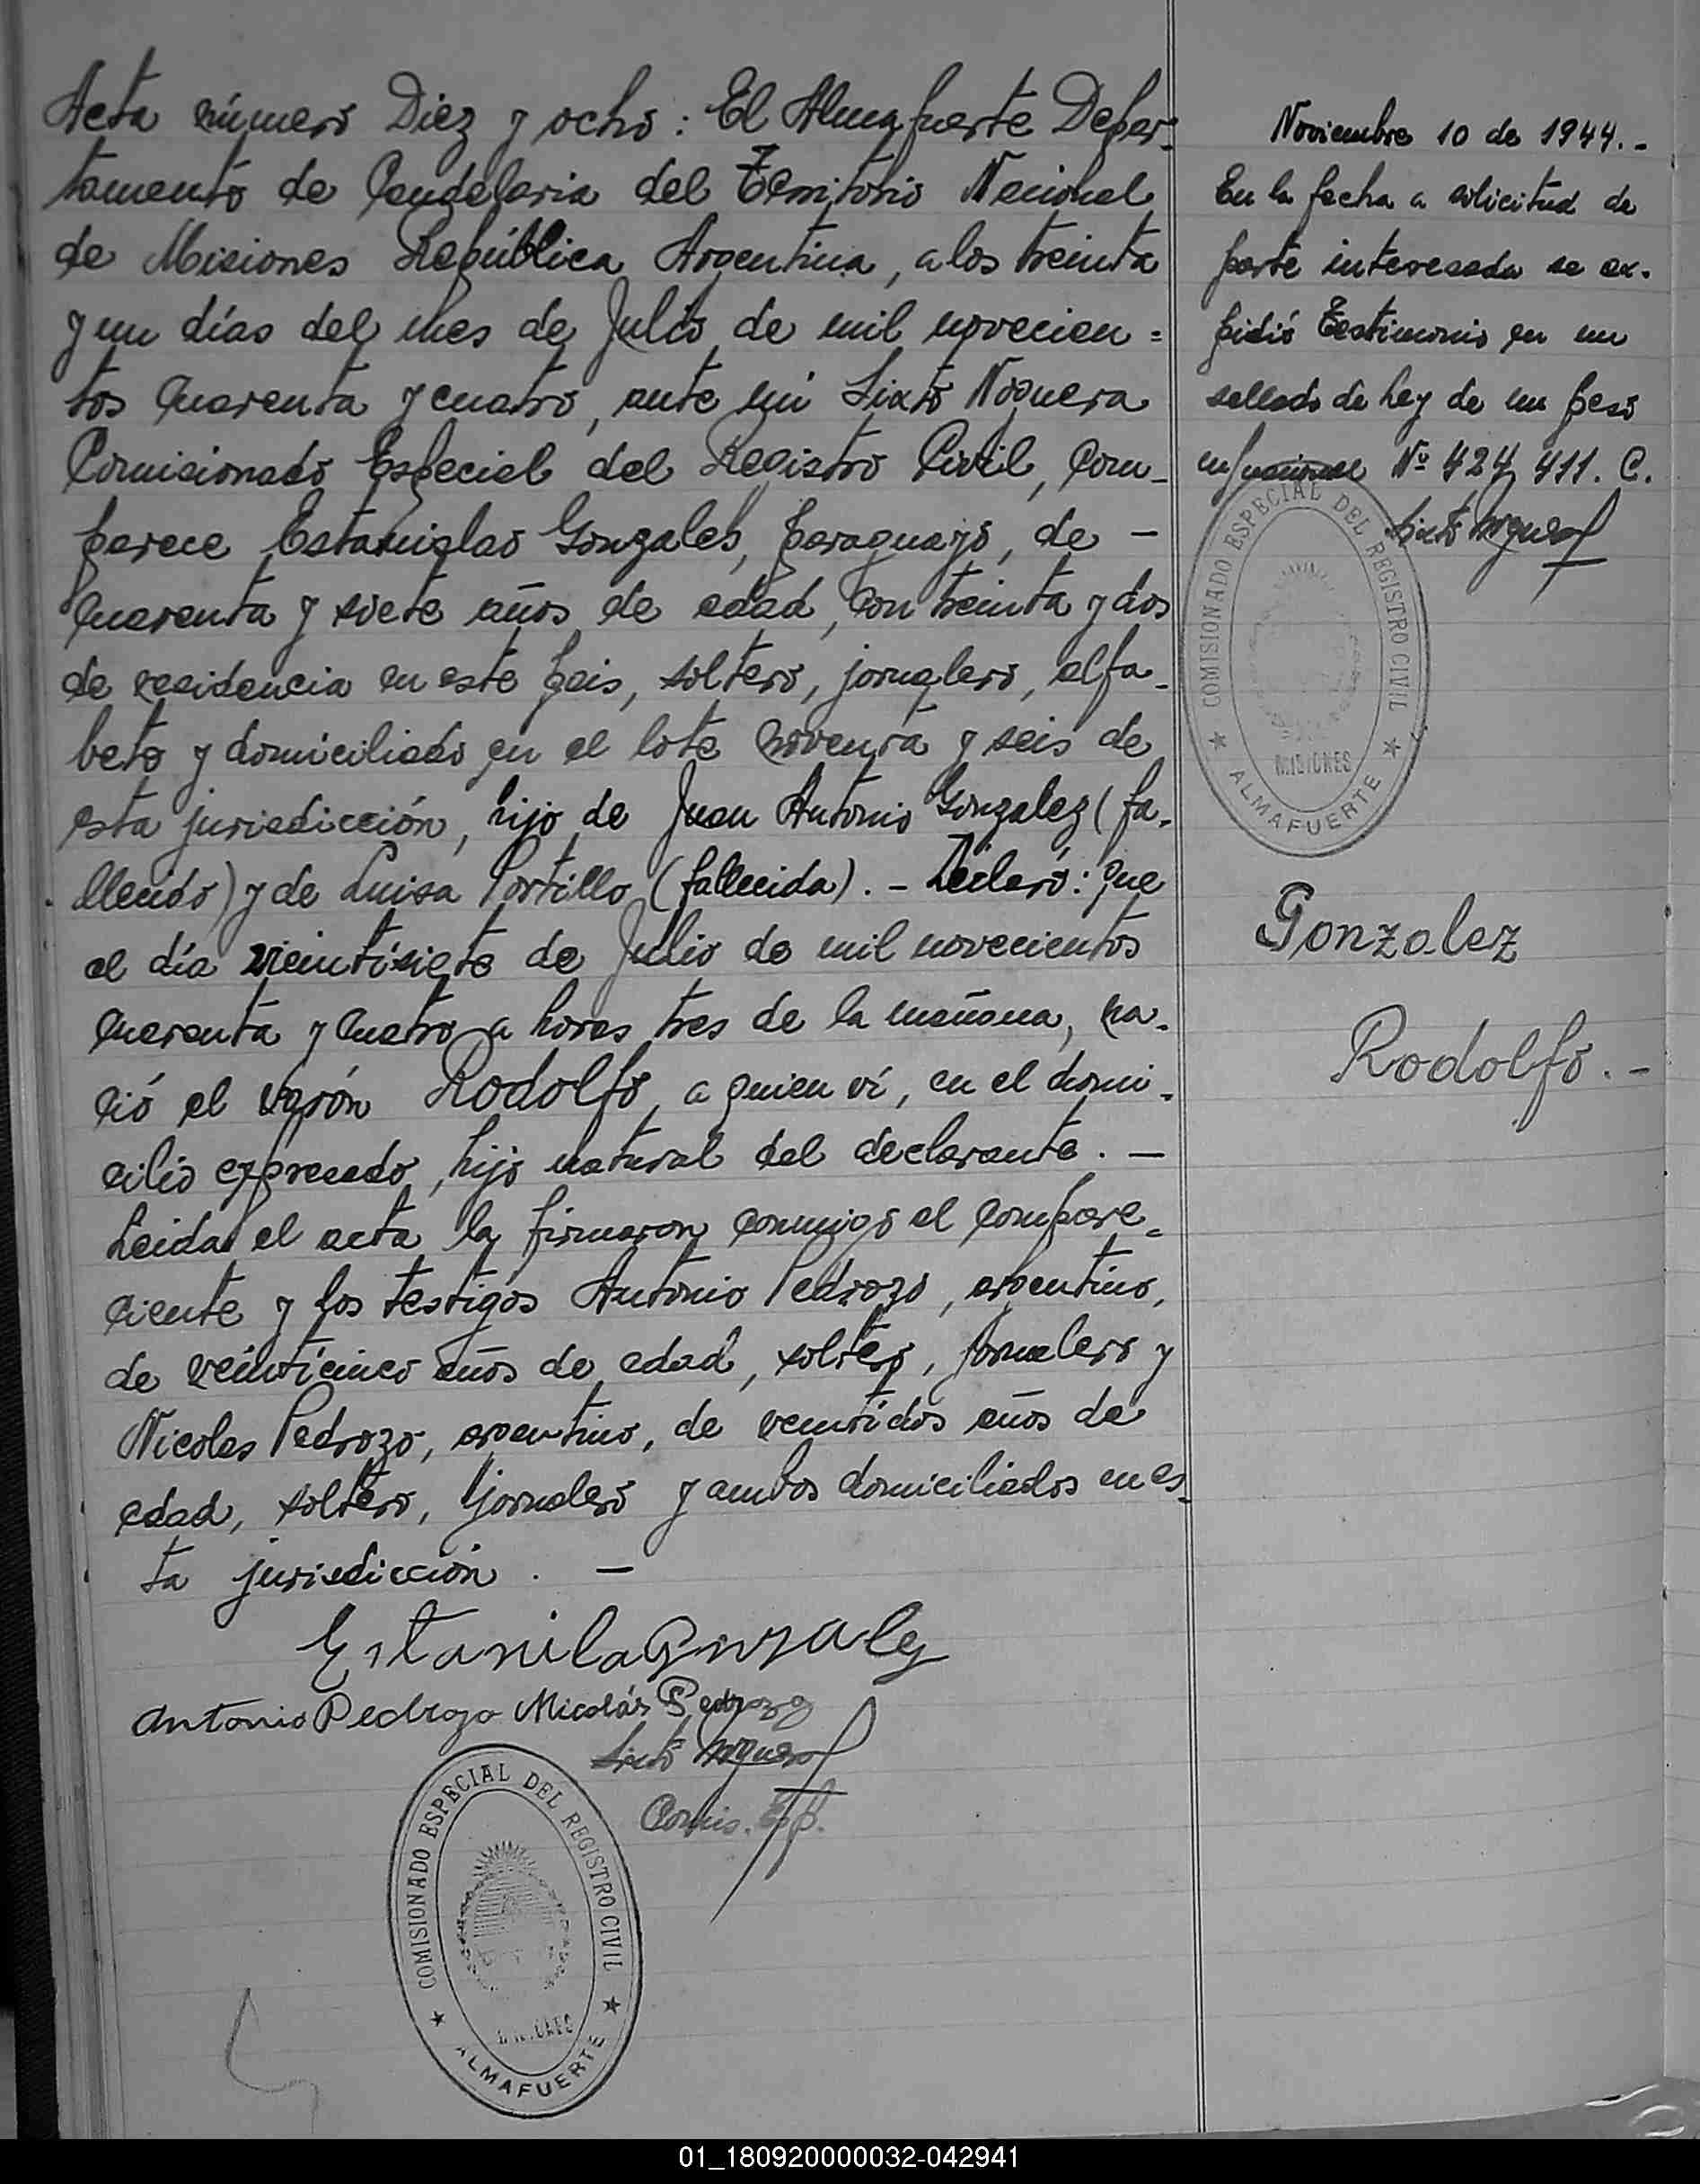 Acta número Diez y ocho: El Almafuerte Depar-
tamento de Candelaria del Territorio Nacional
de Misiones República Argentina, a los treinta
y un días del mes de Julio de mil novecien=
tos cuarenta y cuatro, ante mí Sixto Noguera
Comisionado Especial del Registro Civil, com-
parece Estanislao Gonzales, paraguayo, de -
cuarenta y siete años de edad, con treinta y dos
de residencia en este pais, soltero, jornalero, alfa-
beto y domiciliado en el lote noventa y seis de
esta jurisdicción, hijo de Juan Antonio Gonzalez (fa-
llecido) y de Luisa Portillo (fallecida). - Declaró: que
el día vieintisiete de Julio de mil novecientos
cuarenta y cuatro a horas tres de la mañana, na-
ció el varón Rodolfo, a quien ví, en el domi-
cilio expresado, hijo natural del declarante. -
Leida el acta la firmaron conmigo el compare=
ciente y los testigos Antonio Pedrozo, argentino,
de veinticinco años de edad, soltero, jornalero y
Nicolas Pedrozo, argentino, de ventidos años de
edad, soltero, jornalero y ambos domiciliados en es-
ta jurisdicción. -
Estanila Gonzalez
Antonio Pedrozo Nicolás Pedrozo
Sixto Noguera
Comis. Esp.
COMISIONADO ESPECIAL DEL REGISTRO CIVIL
MISIONES
★ ALMAFUERTE ★
Noviembre 10 de 1944.-
En la fecha a solicitud de
parte interesada se ex-
pidió Testimonio en un
sellado de ley de un peso
m/nacional Nº 424,411. C.
Sixto Noguera
COMISIONADO ESPECIAL DEL REGISTRO CIVIL
MISIONES
★ ALMAFUERTE ★
Gonzalez
Rodolfo.-
01_180920000032-042941